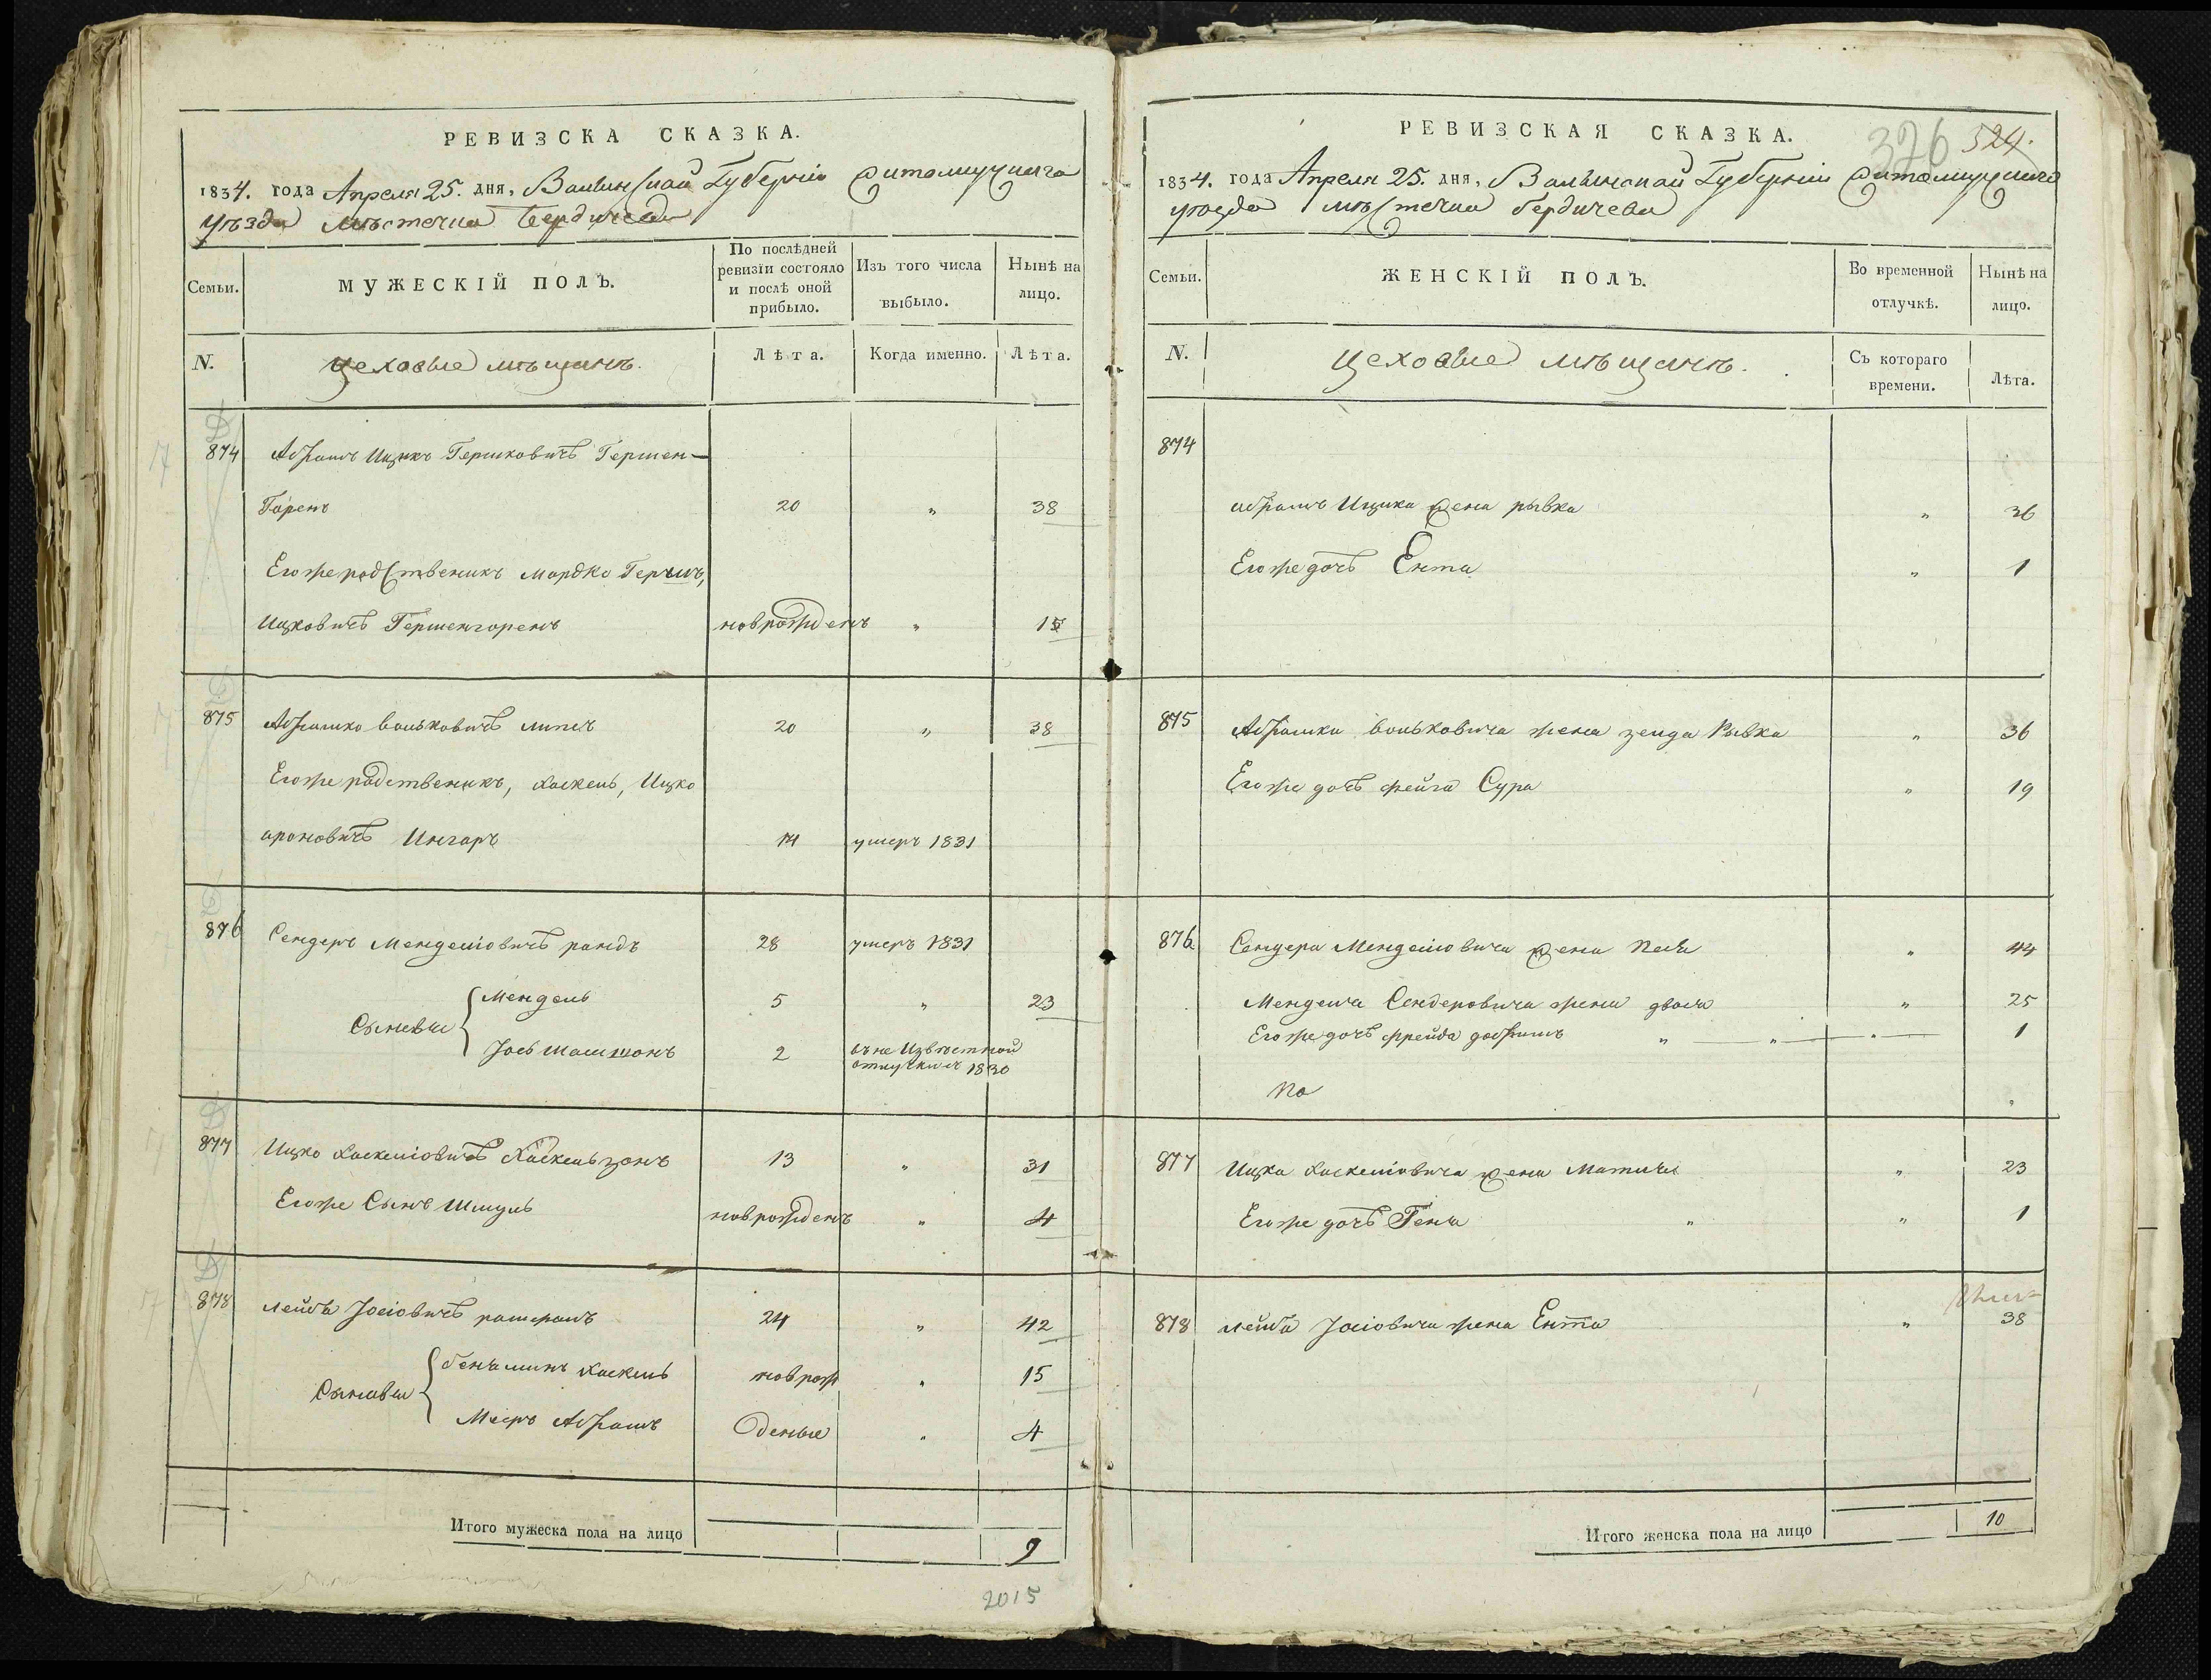 РЕВИЗСКА СКАЗКА.
1834. года Апреля 25. дня, Волынской Губернiи Житомирскаго
уѣзда мѣстечка Бердичева
Семьи.
МУЖЕСКІЙ ПОЛЪ.
По послѣдней ревизіи состояло и послѣ оной прибыло.
Изъ того числа выбыло.
Нынѣ на лицо.
N.
цеховые мѣщанъ.
Лѣта.
Когда именно.
Лѣта.
874 Абрамъ Ицикъ Гершковичъ Гершен-
Горенъ 20 „ 38
Егоже родственикъ Мордко Гершъ,
Ицковичъ Гершенгоренъ новрожденъ „ 15
875 Абрамко Вольковичъ 20 „ 38
Егоже родственикъ, Хаскель, Ицко
ароновичъ Унгаръ 14 умеръ 1831
876 Сендеръ Менделіовичъ рандъ 28 умеръ 1831
Сыновья { Мендель 5 „ 23
Іось 2 въ неизвѣстной отлучки съ 1830
877 Ицко Хаскеліовичъ Хаскельзонъ 13 „ 31
Егоже Сынъ Шмуль новрожденъ „ 4
878 лейба Іосіовичъ 24 „ 42
Сыновья { беньяминъ Хаскель новрож „ 15
Мееръ Абрамъ деные „ 4
Итого мужеска пола на лицо 9
2015
РЕВИЗСКАЯ СКАЗКА.
326 524.
1834. года Апреля 25. дня, Волынской Губернiи Житомирскаго
уѣзда мѣстечка бердичева
Семьи.
ЖЕНСКІЙ ПОЛЪ.
Во временной отлучкѣ.
Нынѣ на лицо.
N.
цеховые мѣщанъ.
Съ котораго времени.
Лѣта.
874
абрамъ Ицика жена рывка „ 36
Егоже дочъ Ента „ 1
875 Абрамка вольковича жена зелда Рывка „ 36
Егоже дочъ фейга Сура „ 19
876 Сендера Менделіовича жена „ 44
Менделя Сендеровича жена двося „ 25
Егоже дочъ фрейда „ „ „ 1
877 Ицка Хаскеліовича жена „ 23
Егоже дочъ Геня „ „ 1
878 лейба Іосіовича жена Ента „ 38
Итого женска пола на лицо 10